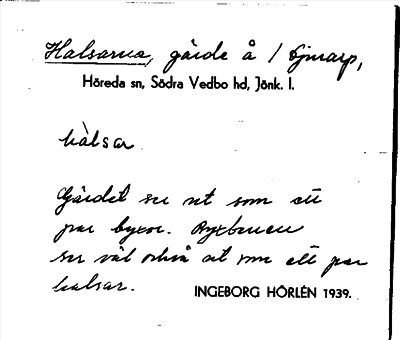 Halsarna, gärde å / Sjunarp,
Höreda sn, Södra Vedbo hd, Jönk. l.
hàlsar
Gärdet ser ut som ett
par byxor. Byxbenen
ser väl också ut som ett par
halsar.
INGEBORG HÖRLÉN 1939.